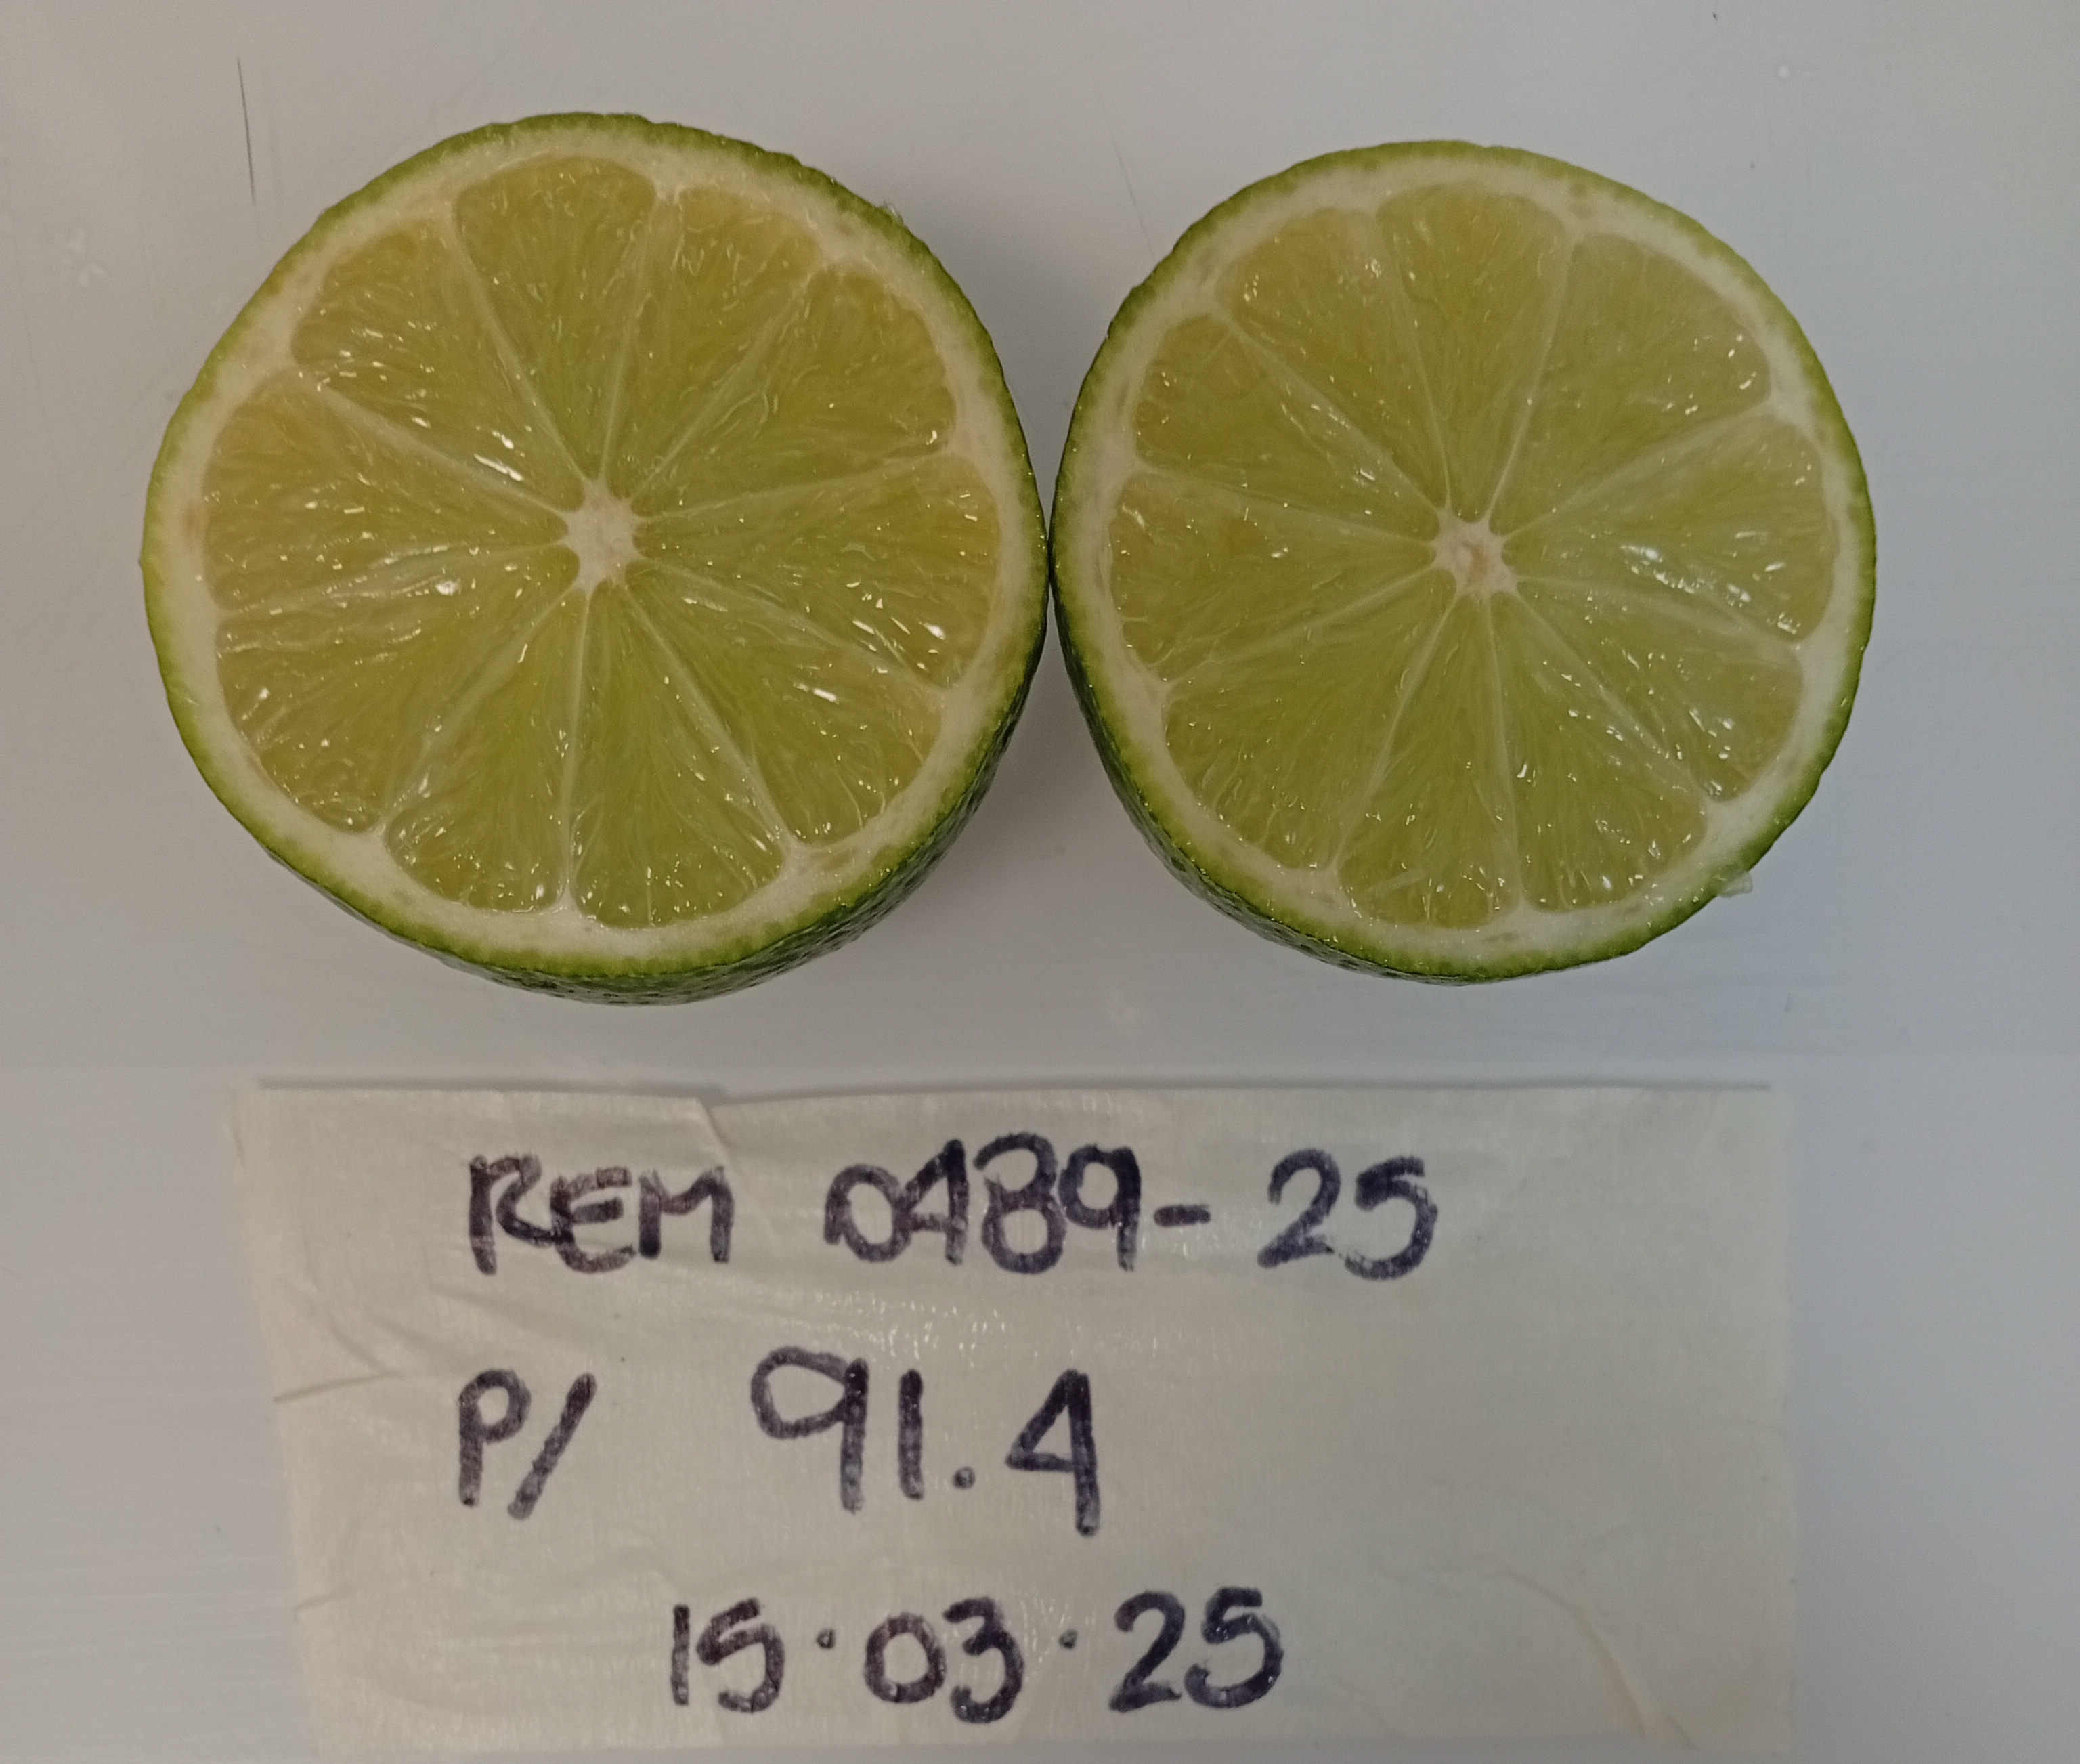 REM 0489-25
P/ 91.4
15.03.25